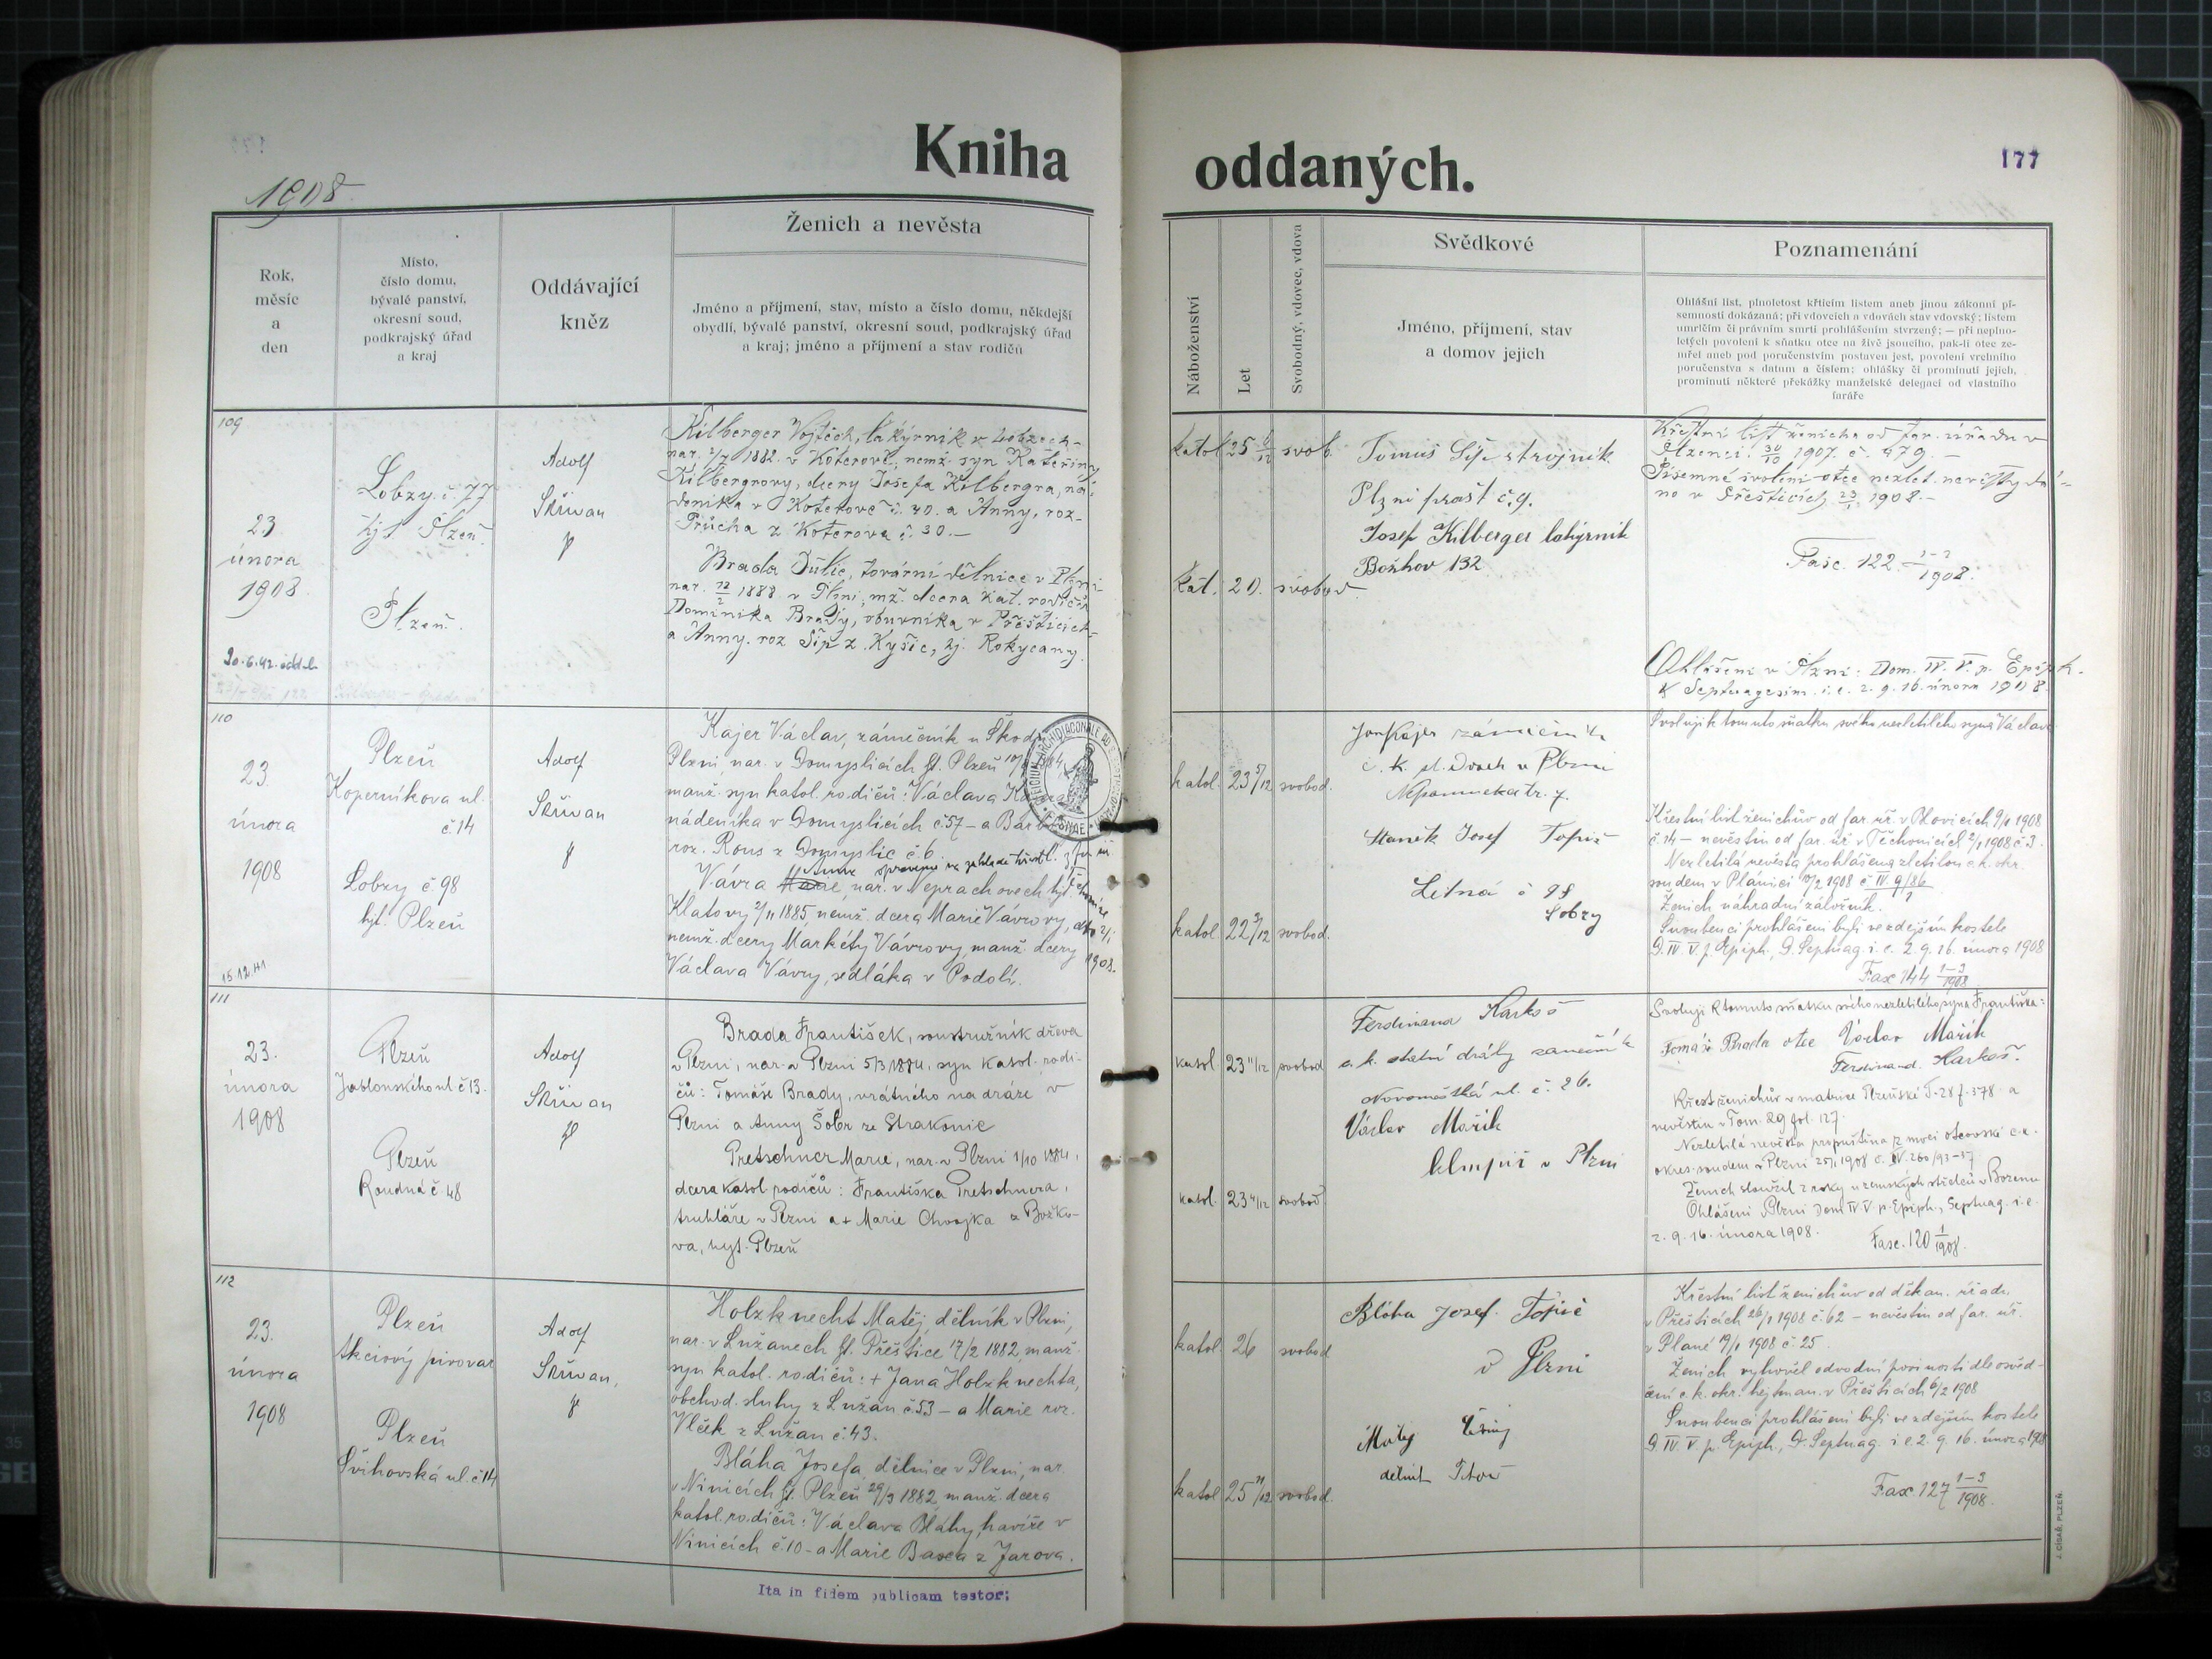 Kniha
oddaných.
177
1908
Rok,
měsíc
a
den
Místo,
číslo domu,
bývalé panství,
okresní soud,
podkrajský úřad
a kraj
Oddávající
kněz
Ženich a nevěsta
Jméno a příjmení, stav, místo a číslo domu, někdejší
obydlí, bývalé panství, okresní soud, podkrajský úřad
a kraj; jméno a příjmení a stav rodičů
Náboženství
Let
Svobodný, vdovec, vdova
Svědkové
Jméno, příjmení, stav
a domov jejich
Poznamenání
Ohlášní list, plnoletost křticím listem aneb jinou zákonní pí-
semností dokázaná; při vdovcích a vdovách stav vdovský; listem
umrlčím či právním smrti prohlášením stvrzený; — při neplno-
letých povolení k sňatku otce na živě jsoucího, pak-li otec ze-
mřel aneb pod poručenstvím postaven jest, povolení vrchního
poručenstva s datum a číslem; ohlášky či prominutí jejich,
prominutí některé překážky manželské delegací od vlastního
faráře
109
23
února
1908.
Lobzy č. 77
hjt. Plzeň.
Plzeň.
Adolf
Skřivan
Kilberger Vojtěch, lakýrník v Lobzech-
nar. 2/7 1882. v Koterově, nemž. syn Kateřiny
Kilbergrovy, dcery Josefa Kilbergra, ná-
deníka v Koterově č. 30. a Anny, roz-
Průcha z Koterova č. 30.-
Brada Julie, tovární dělnice v Plzni-
nar. 12/2 1888 v Plzni, mž. dcera kat. rodičů
Dominika Brady, obuvníka v Přešticích-
a Anny. roz Šíp z Kyšic, hj. Rokycany.
katol 25 svob.
kat. 20. svobod
Tomáš Šíp strojník
Plzni č. 9.
Josef Kilberger lakýrník
Božkov 132
Křestní list ženicha od far. úřadu v
Plzenci. 30/10 1907. č. 479.-
Písemné svolení otce nezlet. nevěsty dá-
no v Přešticích 23/1 1908.-
Fasc. 122. 1-2/1908.
Ohlášeni v Plzni: Dom. IV. V. p. Epiph.
& Septuagesim. i. e. 2. 9. 16. února 1908.
110
23.
února
1908
15.12.41
Plzeň
Koperníkova ul.
č. 14
Lobzy č. 98
hjt. Plzeň
Adolf
Skřivan
Kajer Václav, zámečník u Škod
Plzni, nar. v Domyslicích hjt. Plzeň
manž. syn katol. rodičů: Václava
nádeníka v Domyslicích č. 57 - a
roz. Rous z Domyslic č. 6.
Anna opraveno na základě křestl.
Vávra Marie, nar. v Neprachovech hjt.
Klatovy 2/11 1885, nemž. dcera Marie Vávrovy,
nemž. dcery Markéty Vávrovy, manž. dcery
Václava Vávry, sedláka v Podolí.
1908.
katol. 23 5/12 svobod.
katol. 22 3/12 svobod.
Jan Kajer zámečník
c. k. st. drah v Plzni
Nepomucká tr. 7.
Staněk Josef Topič
Letná č 98
Lobzy
Svoluji k tomuto sňatku svého nezletilého syna Václava
Křestní list ženichův od far. úř. v Blovicích 9/1 1908
č. 14 - nevěstin od far. úř. v Těchonicích 2/1 1908 č. 3.
Nezletilá nevěsta prohlášena zletilou c. k. okr.
soudem v Plánici 10/2 1908 č. IV. 9/86
Ženich náhradní záložník.
Snoubenci prohlášeni byli ve zdejším kostele
D. IV. V. p. Epiph., D. Septuag. i. e. 2. 9. 16. února 1908
Fasc 144 1-3/1908
111
23.
února
1908
Plzeň
Jablonského ul. č 13.
Plzeň
Roudná č. 48
Adolf
Skřivan
Brada František, soustružník dřeva
v Plzni, nar. v Plzni 5/3 1884, syn katol. rodi-
čů: Tomáše Brady, vrátného na dráze v
Plzni a Anny Šobr ze Strakonic
Pretschner Marie, nar. v Plzni 1/10 1884,
dcera katol. rodičů: Františka Pretschnera,
truhláře v Plzni a + Marie Chvojka z Božko-
va, hyt. Plzeň
katol. 23 11/12 svobod
katol. 23 4/12 svobod
Ferdinand Karkoš
c. k. státní dráhy zámečník
Novoměstká ul. č. 26.
Václav Mařík
klempíř v Plzni
Svoluji k tomuto sňatku svého nezletilého syna Františka:
Tomáš Brada otec Václav Mařík
Ferdinand Karkoš.
Křest ženichův v matrice Plzeňské T. 28 f. 378 a
nevěstin v Tom. 29 fol. 127.
Nezletilá nevěsta propuštěna z moci otcovské c. k.
okres. soudem v Plzni 25/1 1908 č. IV. 260/93-37
Ženich sloužil 2 roky u zemských střelců v Bozenu
Ohlášeni v Plzni Dom IV. V. p. Epiph., Septuag. i. e.
2. 9. 16. února 1908.
Fasc. 120 1/1908.
112
23.
února
1908
Plzeň
Akciový pivovar
Plzeň
Švihovská ul. č 14
Adolf
Skřivan,
Holzknecht Matěj, dělník v Plzni,
nar. v Lužanech hjt. Přeštice 17/2 1882, manž.
syn katol. rodičů: + Jana Holzknechta,
obchod. sluhy z Lužan č. 53 - a Marie roz.
Vlček z Lužan č. 43.
Bláha Josefa, dělnice v Plzni, nar.
v Ninicích hjt. Plzeň 29/3 1882, manž. dcera
katol. rodičů: Václava Bláhy, havíře v
Ninicích č. 10 - a Marie Basea z Jarova.
katol. 26 svobod
katol 25 svobod.
Bláha Josef. Topič
v Plzni
Matěj
dělník
Křestní list ženichův od děkan. úřadu
v Přešticích 26/1 1908 č. 62 - nevěstin od far. úř.
v Plané 19/1 1908 č. 25.
Ženich vyhověl odvodní povinnosti dle osvěd-
čení c. k. okr. hejtman. v Přešticích 6/2 1908
Snoubenci prohlášeni byli ve zdejším kostele
D. IV. V. p. Epiph., D. Septuag. i. e. 2. 9. 16. února 1908
Fasc. 127 1-3/1908.
Ita in fidem publicam testor:
J. CÍSAŘ, PLZEŇ.